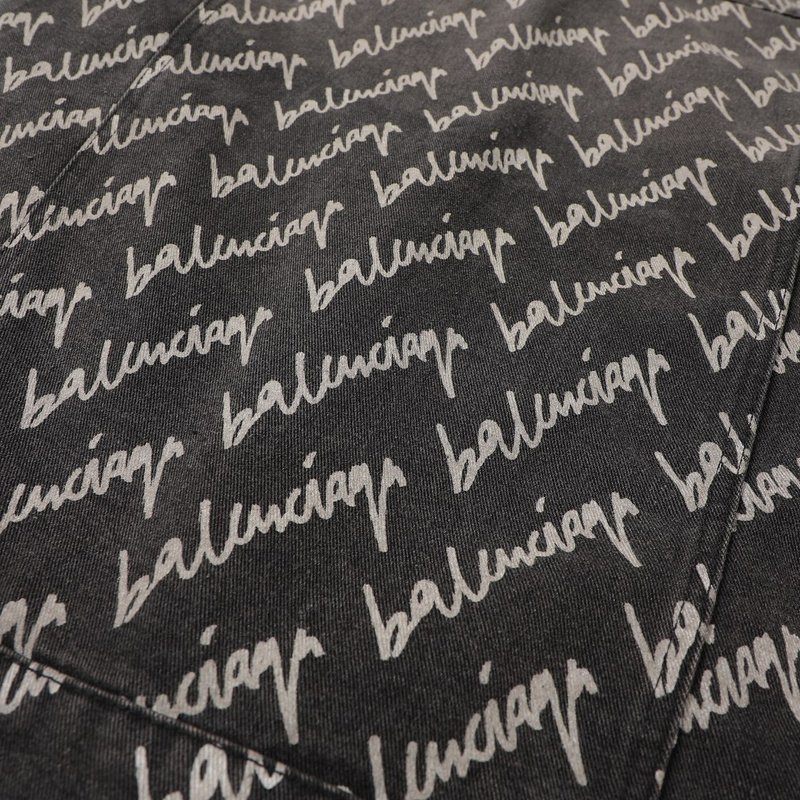 balenciaga balenciaga balenciaga
balenciaga balenciaga balenciaga balenciaga
balenciaga balenciaga balenciaga balenciaga
balenciaga balenciaga balenciaga balenciaga
balenciaga balenciaga balenciaga
balenciaga balenciaga balenciaga
balenciaga balenciaga balenciaga
balenciaga balenciaga
balenciaga balenciaga